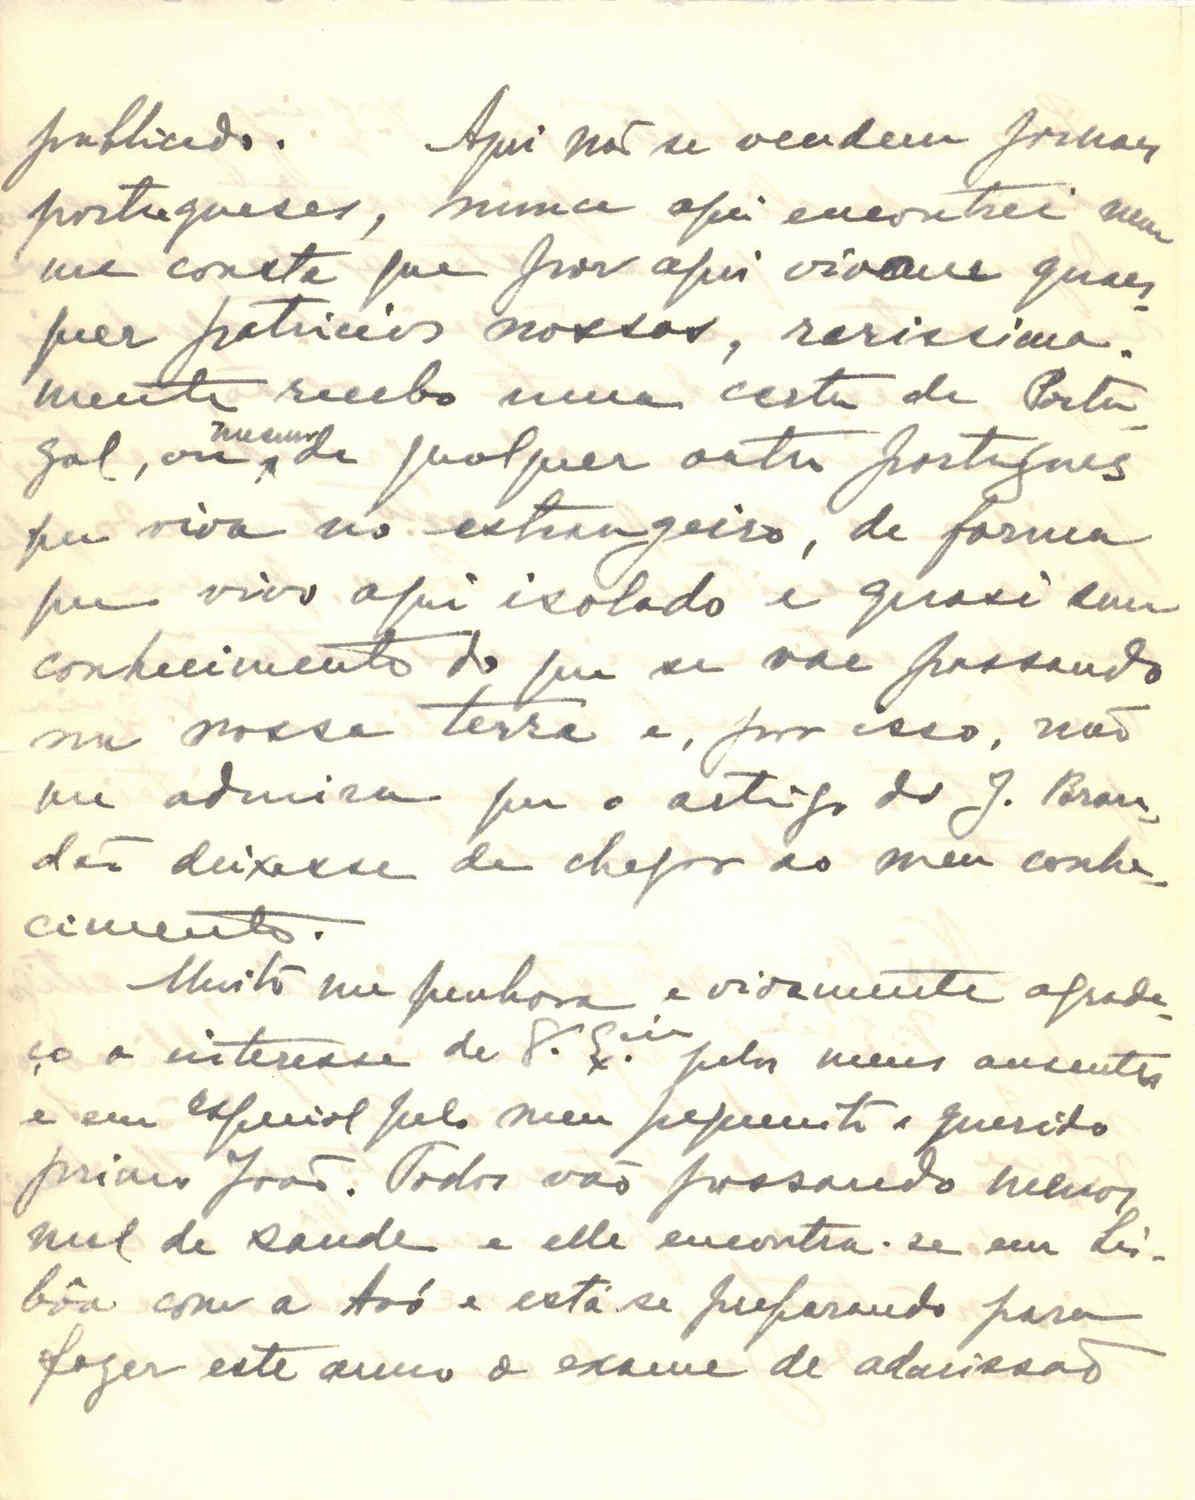 publicado. Aqui não se vendem jornaes
portugueses, nunca aqui encontrei nem
me consta que por aqui vivam quaes-
quer patricios nossos, rarissima-
mente recebo uma carta de Portu-
gal, ou mesmo de qualquer outro português
que viva no estrangeiro, de forma
que vivo aqui isolado e quasi sem
conhecimento do que se vae passando
na nossa terra e, por isso, não
me admira que o artigo do J. Bran-
dão deixasse de chegar ao meu conhe-
cimento.
Muito me penhora e vivamente agrade-
ço o interesse de V. Ex.cia pelos meus ausentes
e em especial pelo meu pequenito e querido
primo João. Todos vão passando menos
mal de saude e elle encontra-se em Lis-
bôa com a Avó e está-se preparando para
fazer este anno o exame de admissão